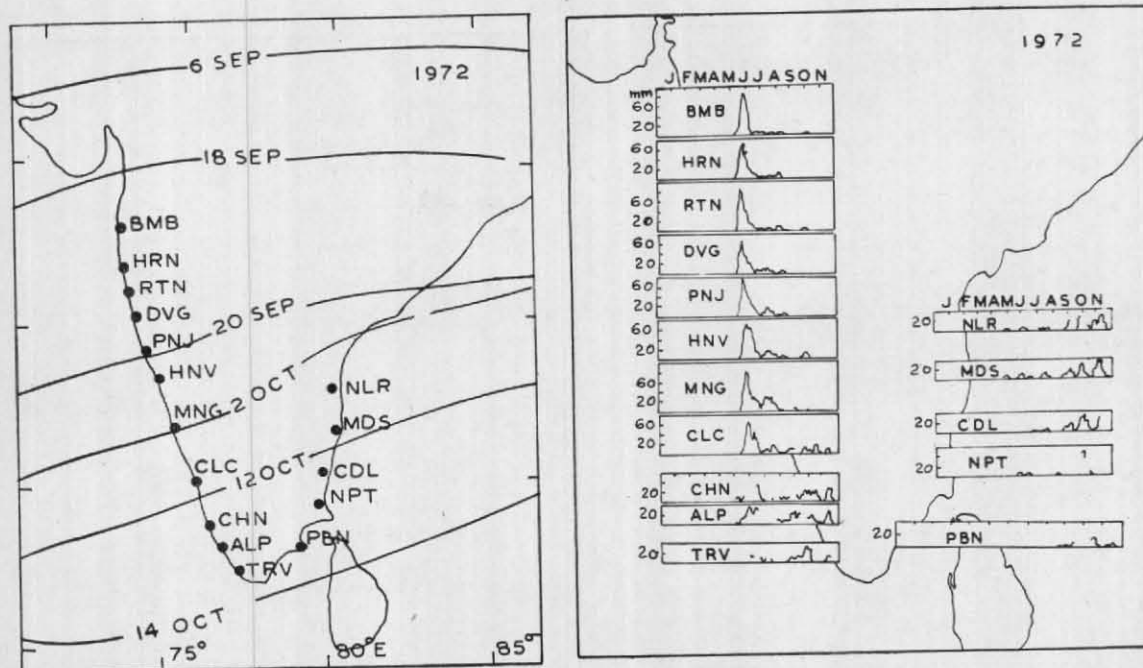 6 SEP
1972
18 SEP
BMB
HRN
RTN
DVG
20 SEP
PNJ
HNV
2 OCT
NLR
MNG
MDS
CLC
12 OCT
CDL
NPT
CHN
ALP
PBN
TRV
14 OCT
75° 80°E 85°
1972
J F M A M J J A S O N
mm
60
20
BMB
60
20
HRN
60
20
RTN
60
20
DVG
60
20
PNJ
60
20
HNV
60
20
MNG
60
20
CLC
20
CHN
20
ALP
20
TRV
J F M A M J J A S O N
20
NLR
20
MDS
20
CDL
20
NPT
?
20
PBN